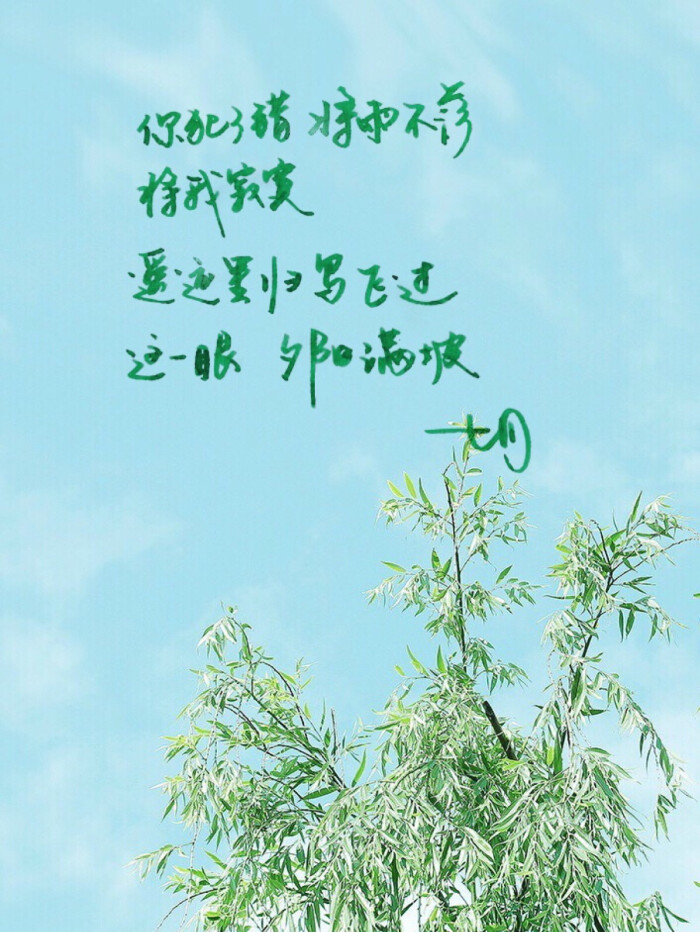 你犯了错 将雨不落
将我寂寞
遥这里归鸟飞过
这一眼 夕阳满坡
七月